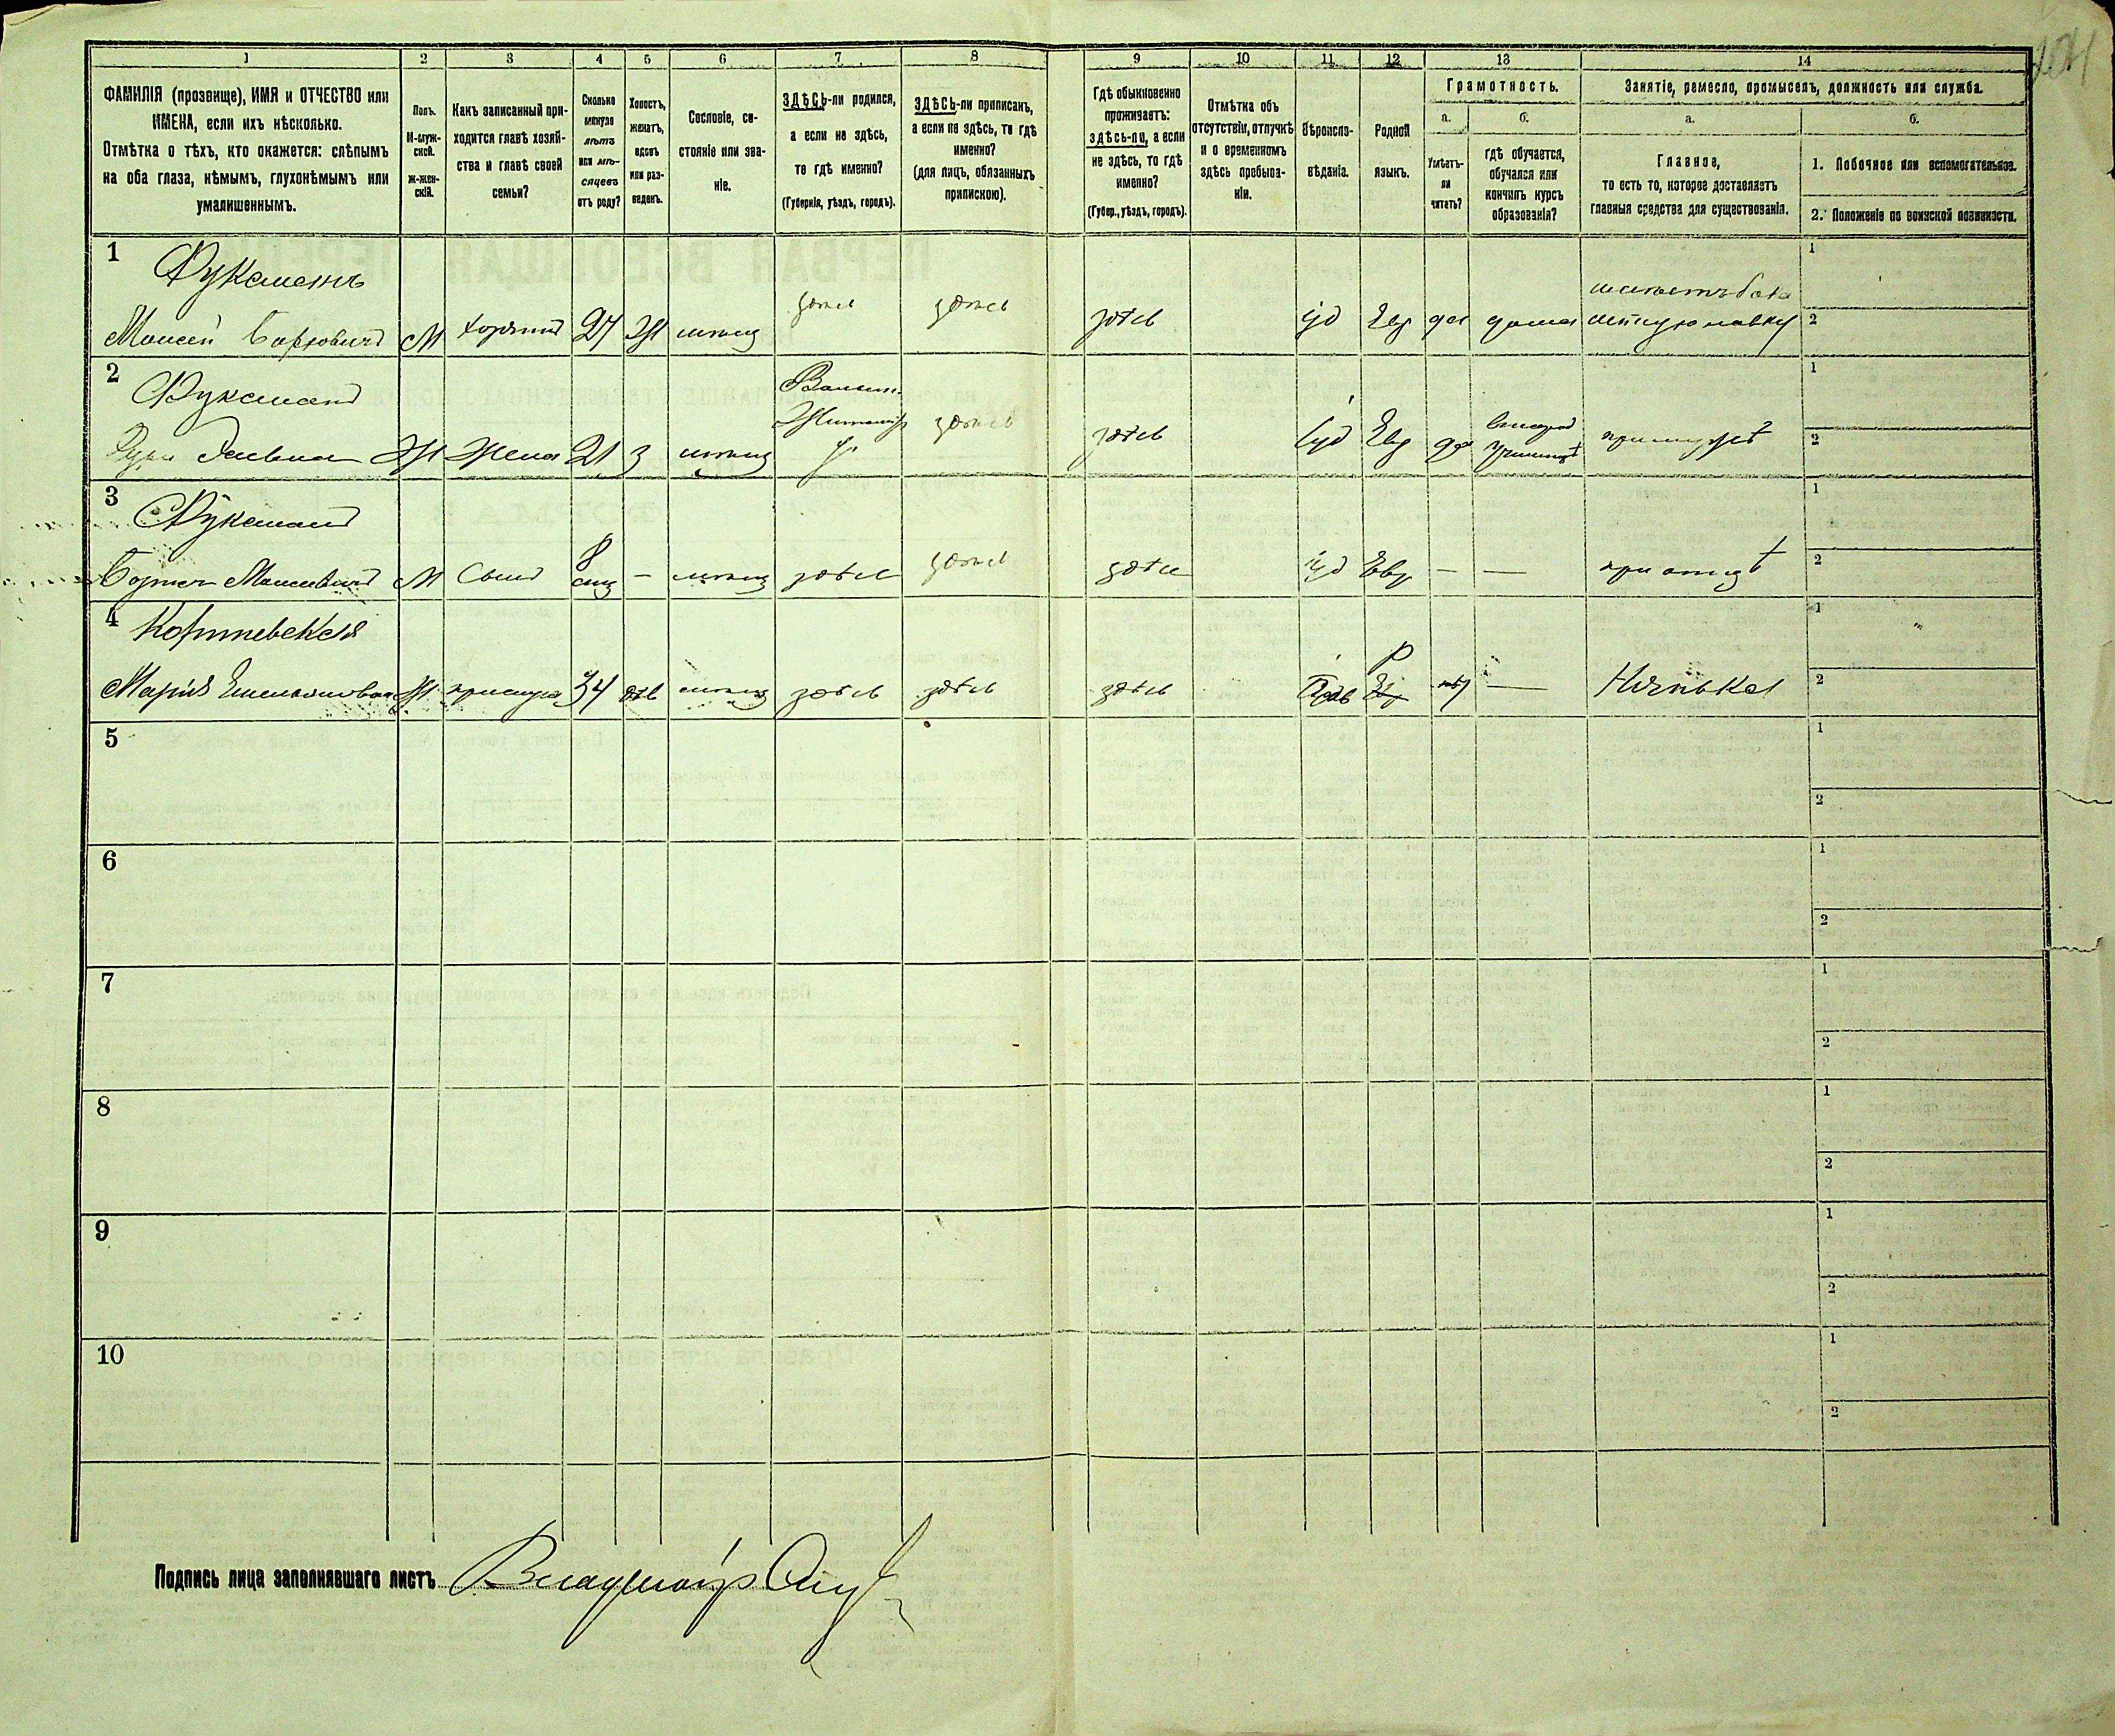 104
1 2 3 4 5 6 7 8 9 10 11 12 13 14
ФАМИЛІЯ (прозвище), ИМЯ и ОТЧЕСТВО или
ИМЕНА, если ихъ нѣсколько.
Отмѣтка о тѣхъ, кто окажется: слѣпымъ
на оба глаза, нѣмымъ, глухонѣмымъ или
умалишеннымъ.
Полъ.
М-муж-
ской.
ж-жен-
скій.
Какъ записанный при-
ходится главѣ хозяй-
ства и главѣ своей
семьи?
Сколько
минуло
лѣтъ
или мѣ-
сяцевъ
отъ роду?
Холостъ,
женатъ,
вдовъ
или раз-
веденъ.
Сословіе, со-
стояніе или зва-
ніе.
ЗДѢСЬ-ли родился,
а если не здѣсь,
то гдѣ именно?
(Губернія, уѣздъ, городъ).
ЗДѢСЬ-ли приписанъ,
а если не здѣсь, то гдѣ
именно?
(для лицъ, обязанныхъ
припискою).
Гдѣ обыкновенно
проживаетъ:
здѣсь-ли, а если
не здѣсь, то гдѣ
именно?
(Губер., уѣздъ, городъ).
Отмѣтка объ
отсутствіи, отлучкѣ
и о временномъ
здѣсь пребыва-
ніи.
Вѣроиспо-
вѣданіе.
Родной
языкъ.
Грамотность.
а. б.
Умѣетъ-
ли
читать?
гдѣ обучается,
обучался или
кончилъ курсъ
образованія?
Занятіе, ремесло, промыселъ, должность или служба.
а. б.
Главное,
то есть то, которое доставляетъ
главныя средства для существованія.
1. Побочное или вспомогательное.
2. Положеніе по воинской повинности.
1 Фуксманъ 1
Моисей Борховичъ М хозяинъ 27 Ж мѣщ здѣсь здѣсь здѣсь іуд Евр да дома лавку 2
2 Фуксманъ Волын. 1
Ж Жена 21 З мѣщ здѣсь здѣсь іуд Евр да при мужѣ 2
3 Фуксманъ 1
Моисеевичъ М Сынъ 8 мѣщ — мѣщ здѣсь здѣсь здѣсь іуд Евр — — при отцѣ 2
4 1
Марія Емельяновна Ж прислуга 34 дѣв мѣщ здѣсь здѣсь здѣсь Прав Р нѣт — Нянька 2
5 1
2
6 1
2
7 1
2
8 1
2
9 1
2
10 1
2
Подпись лица заполнявшаго листъ Владиміръ